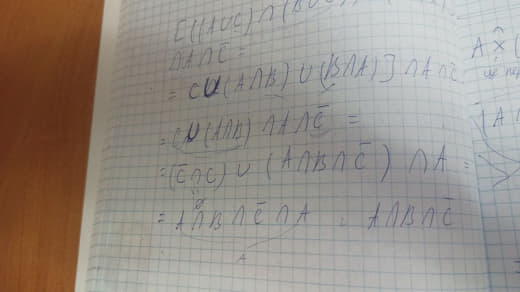 [(A∪C)∩(B∪C)]
∩A∩C̅ =
= C∪(A∩B)∪(B∩A)]∩A∩C̅
= (C∪(A∩B)∩A∩C̅ =
= (C̅∩C)∪(A∩B∩C̅)∩A =
∅
= A∩B∩C̅∩A . A∩B∩C̅
A
A x̂ (
це пер
(A ∩